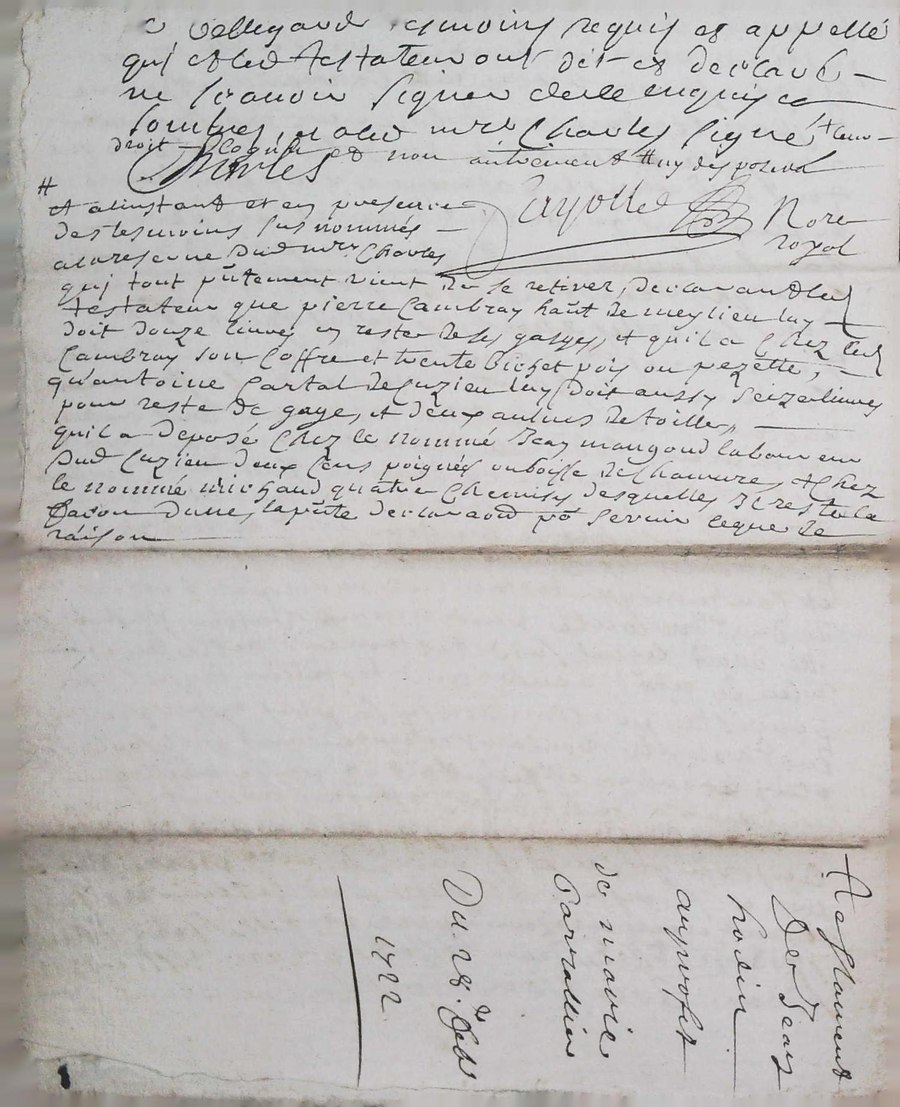 Bellegarde tesmoins requis et appellé
qui et led testateur ont dit et declaré
ne scavoir signer de ce enquis et
sommes, et led mre Charles signé
droit et non autrement
Charles
Fayolle
Nore
royal
#
et alinstant et en presence
des tesmoins sus nommés
ala reserve dud mre Charles
qui tout pntement vient de se retirer, declarand led
testateur que pierre Cambray haut de meylieu luy
doit douze livres en reste de ses gages, et quil a chez led
Cambray son coffre et trente bichet pois ou pezette,
quantoine partal de Cuzieu luy doit aussy seize livres
pour reste de gage, et deux aulnes de toille,
quil a deposé chez le nommé Jean mangond laboureur
dud Cuzieu deux cens poignés ou boisse de chanvre, et chez
le nommé michaud quatre chemises desquelles Il reste la
facon dune, la pnte declaraon po servir ce que de
raison
Testament
de Jean
hodin
au profit
de marie
Parrallier
Du 28e febr
1722